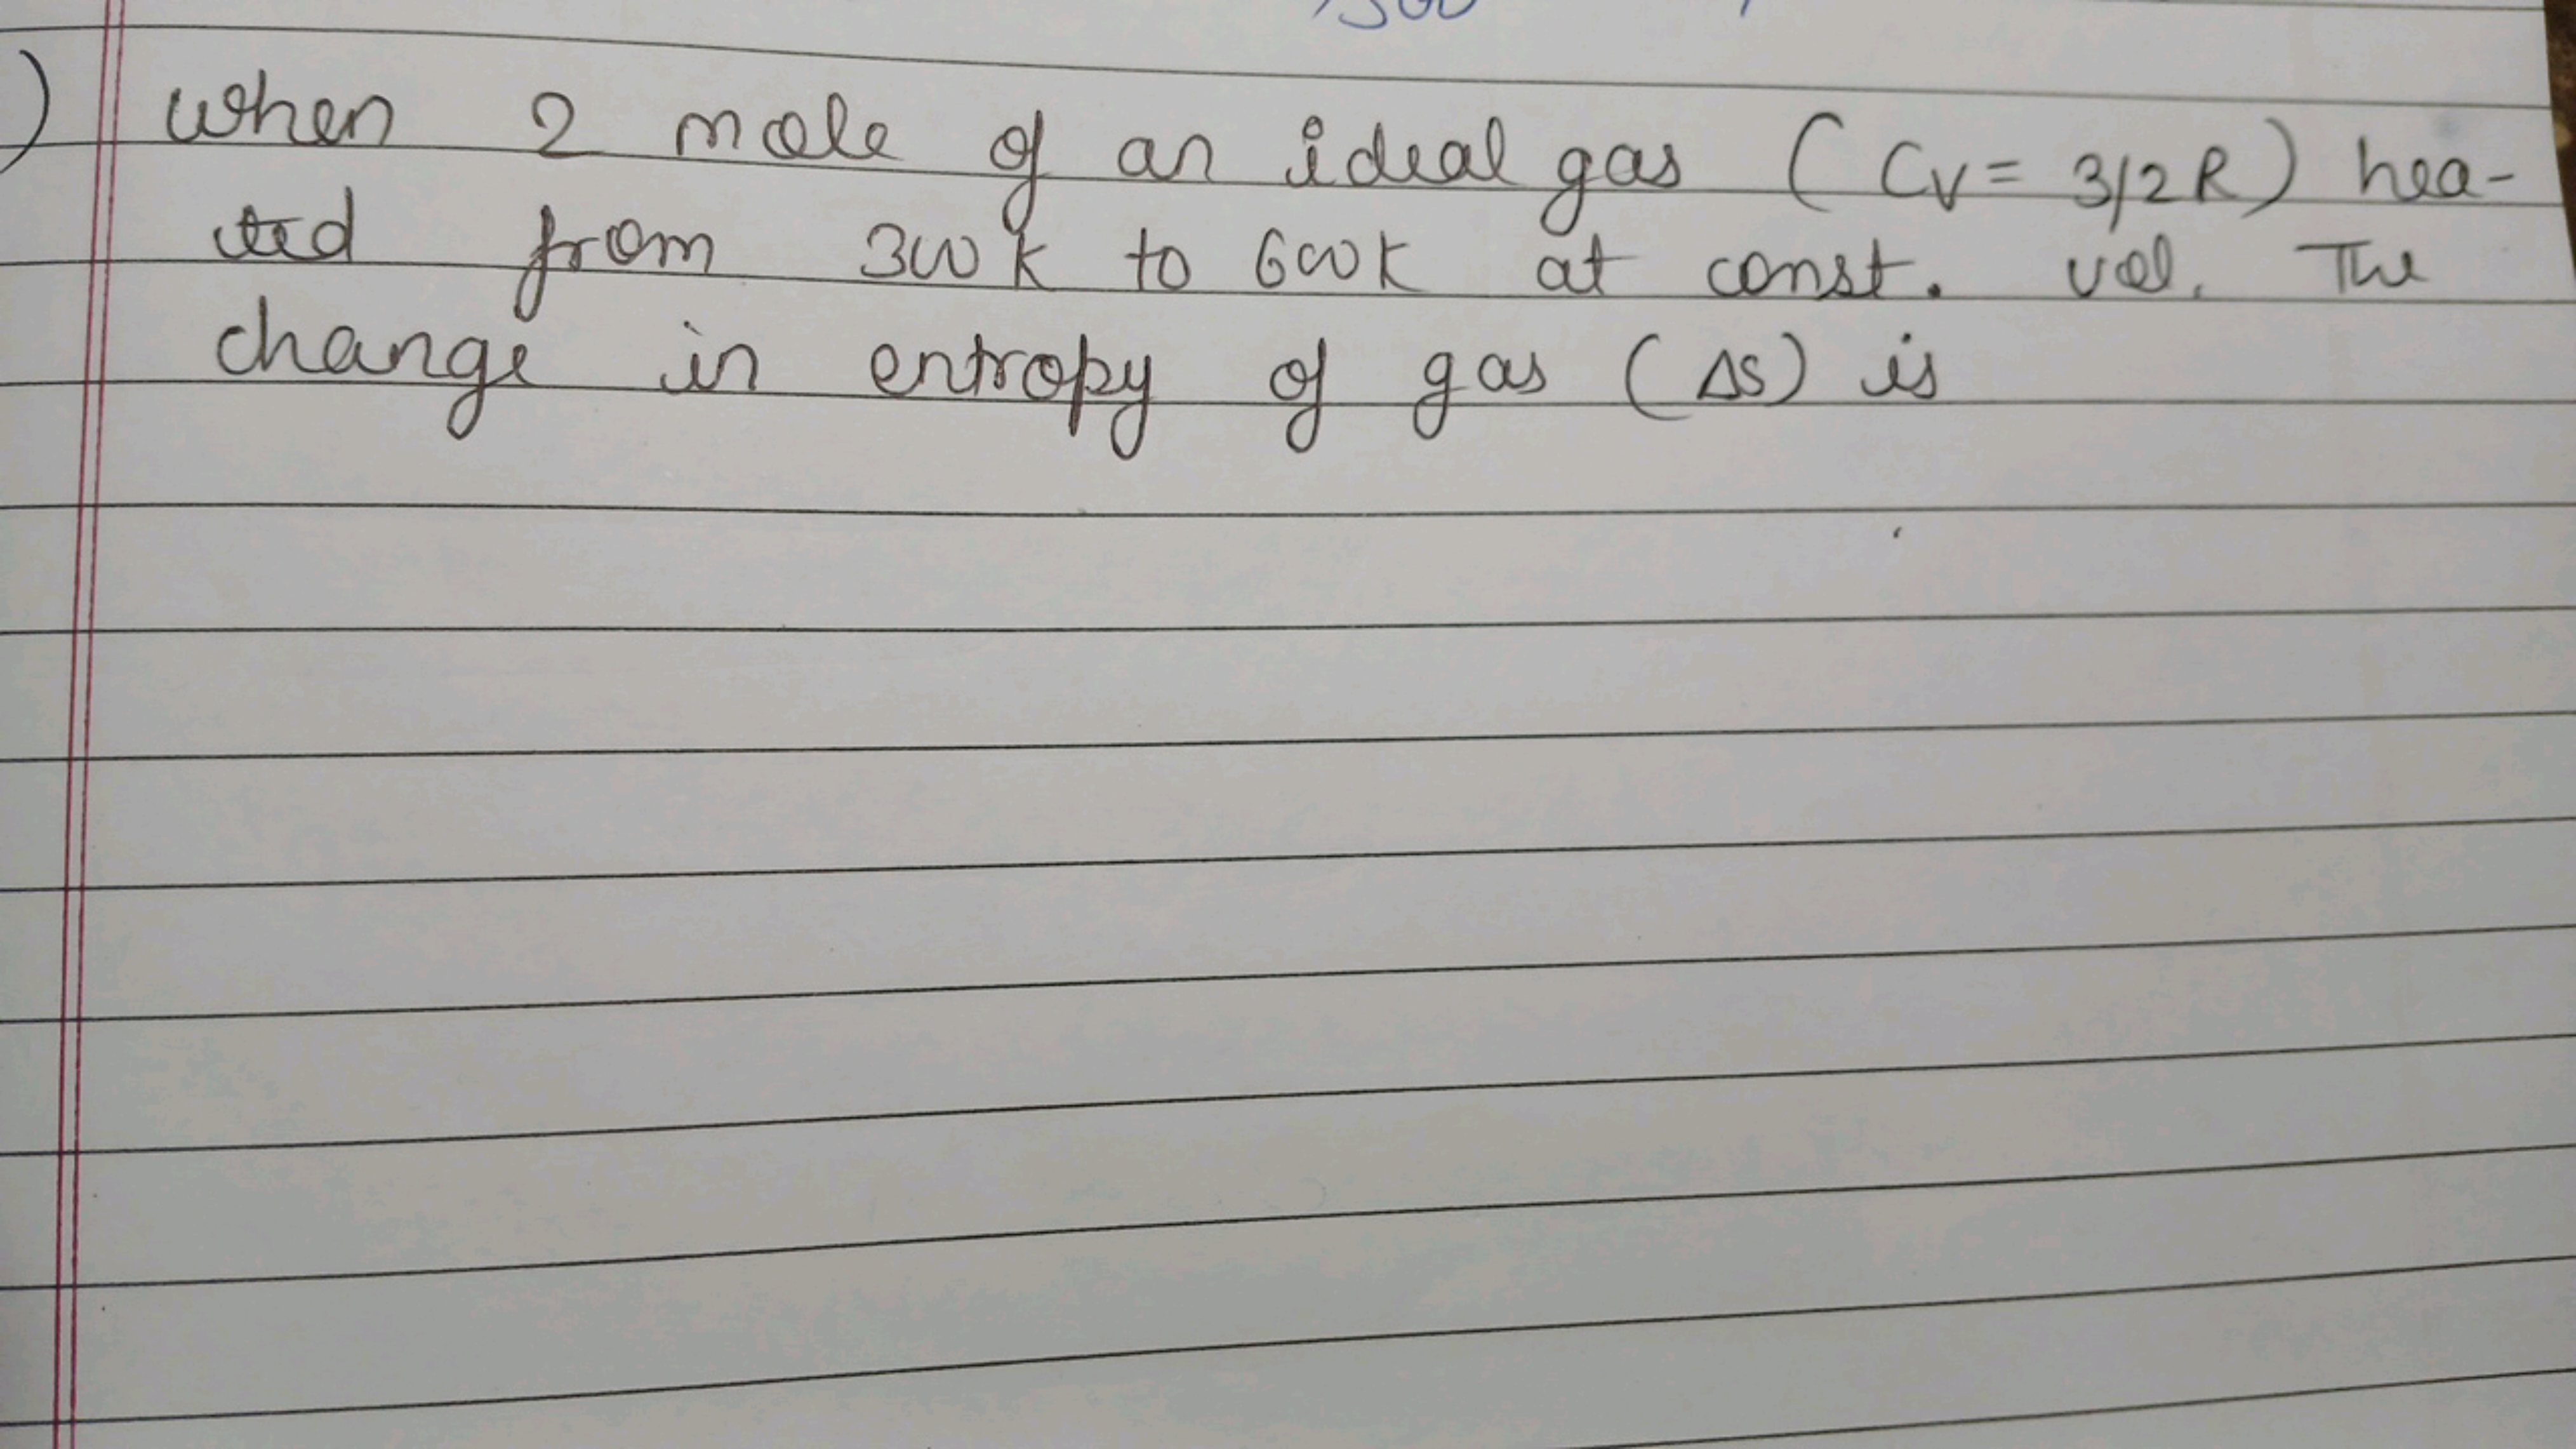 ) when 2 mole of an ideal gas (Cv = 3/2 R) hea-
ted from 300 k to 600 k at const. vol. The
change in entropy of gas (ΔS) is